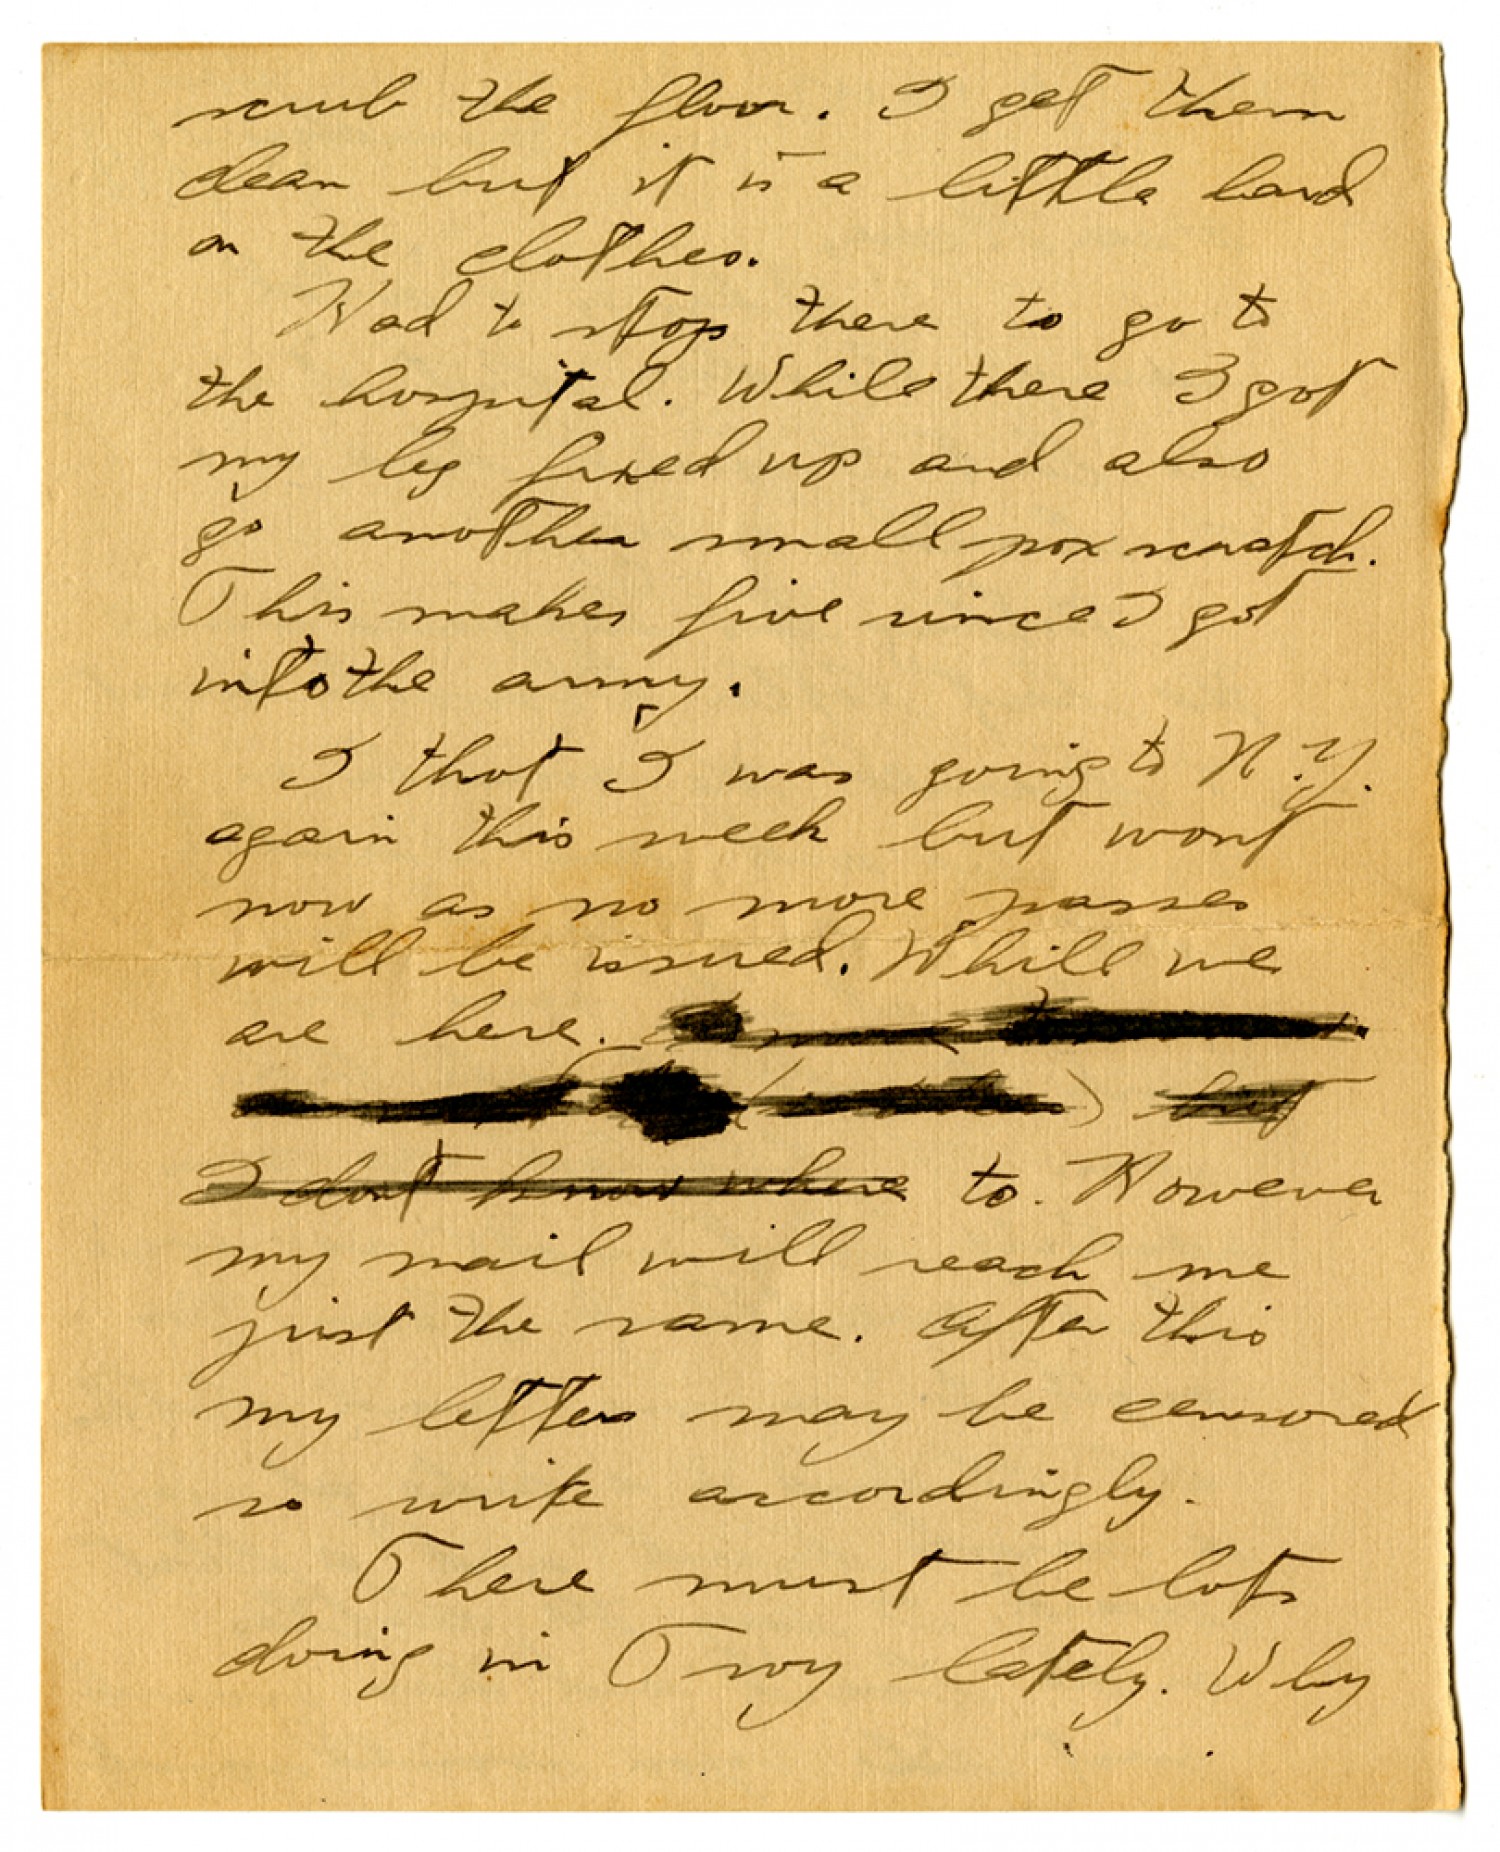 scrub the floor. I get them
clean but it is a little hard
on the clothes.
Had to stop there to go to
the hospital. While there I got
my leg fixed up and also
go another small pox scratch.
This makes five since I got
into the army.
I that I was going to N.Y.
again this week but wont
now as no more passes
will be issued. Whill we
are here. more
( ) but
I dont know where to. However
my mail will reach me
just the same. After this
my letters may be censored
so write accordingly.
There must be lots
doing in Troy lately. Why